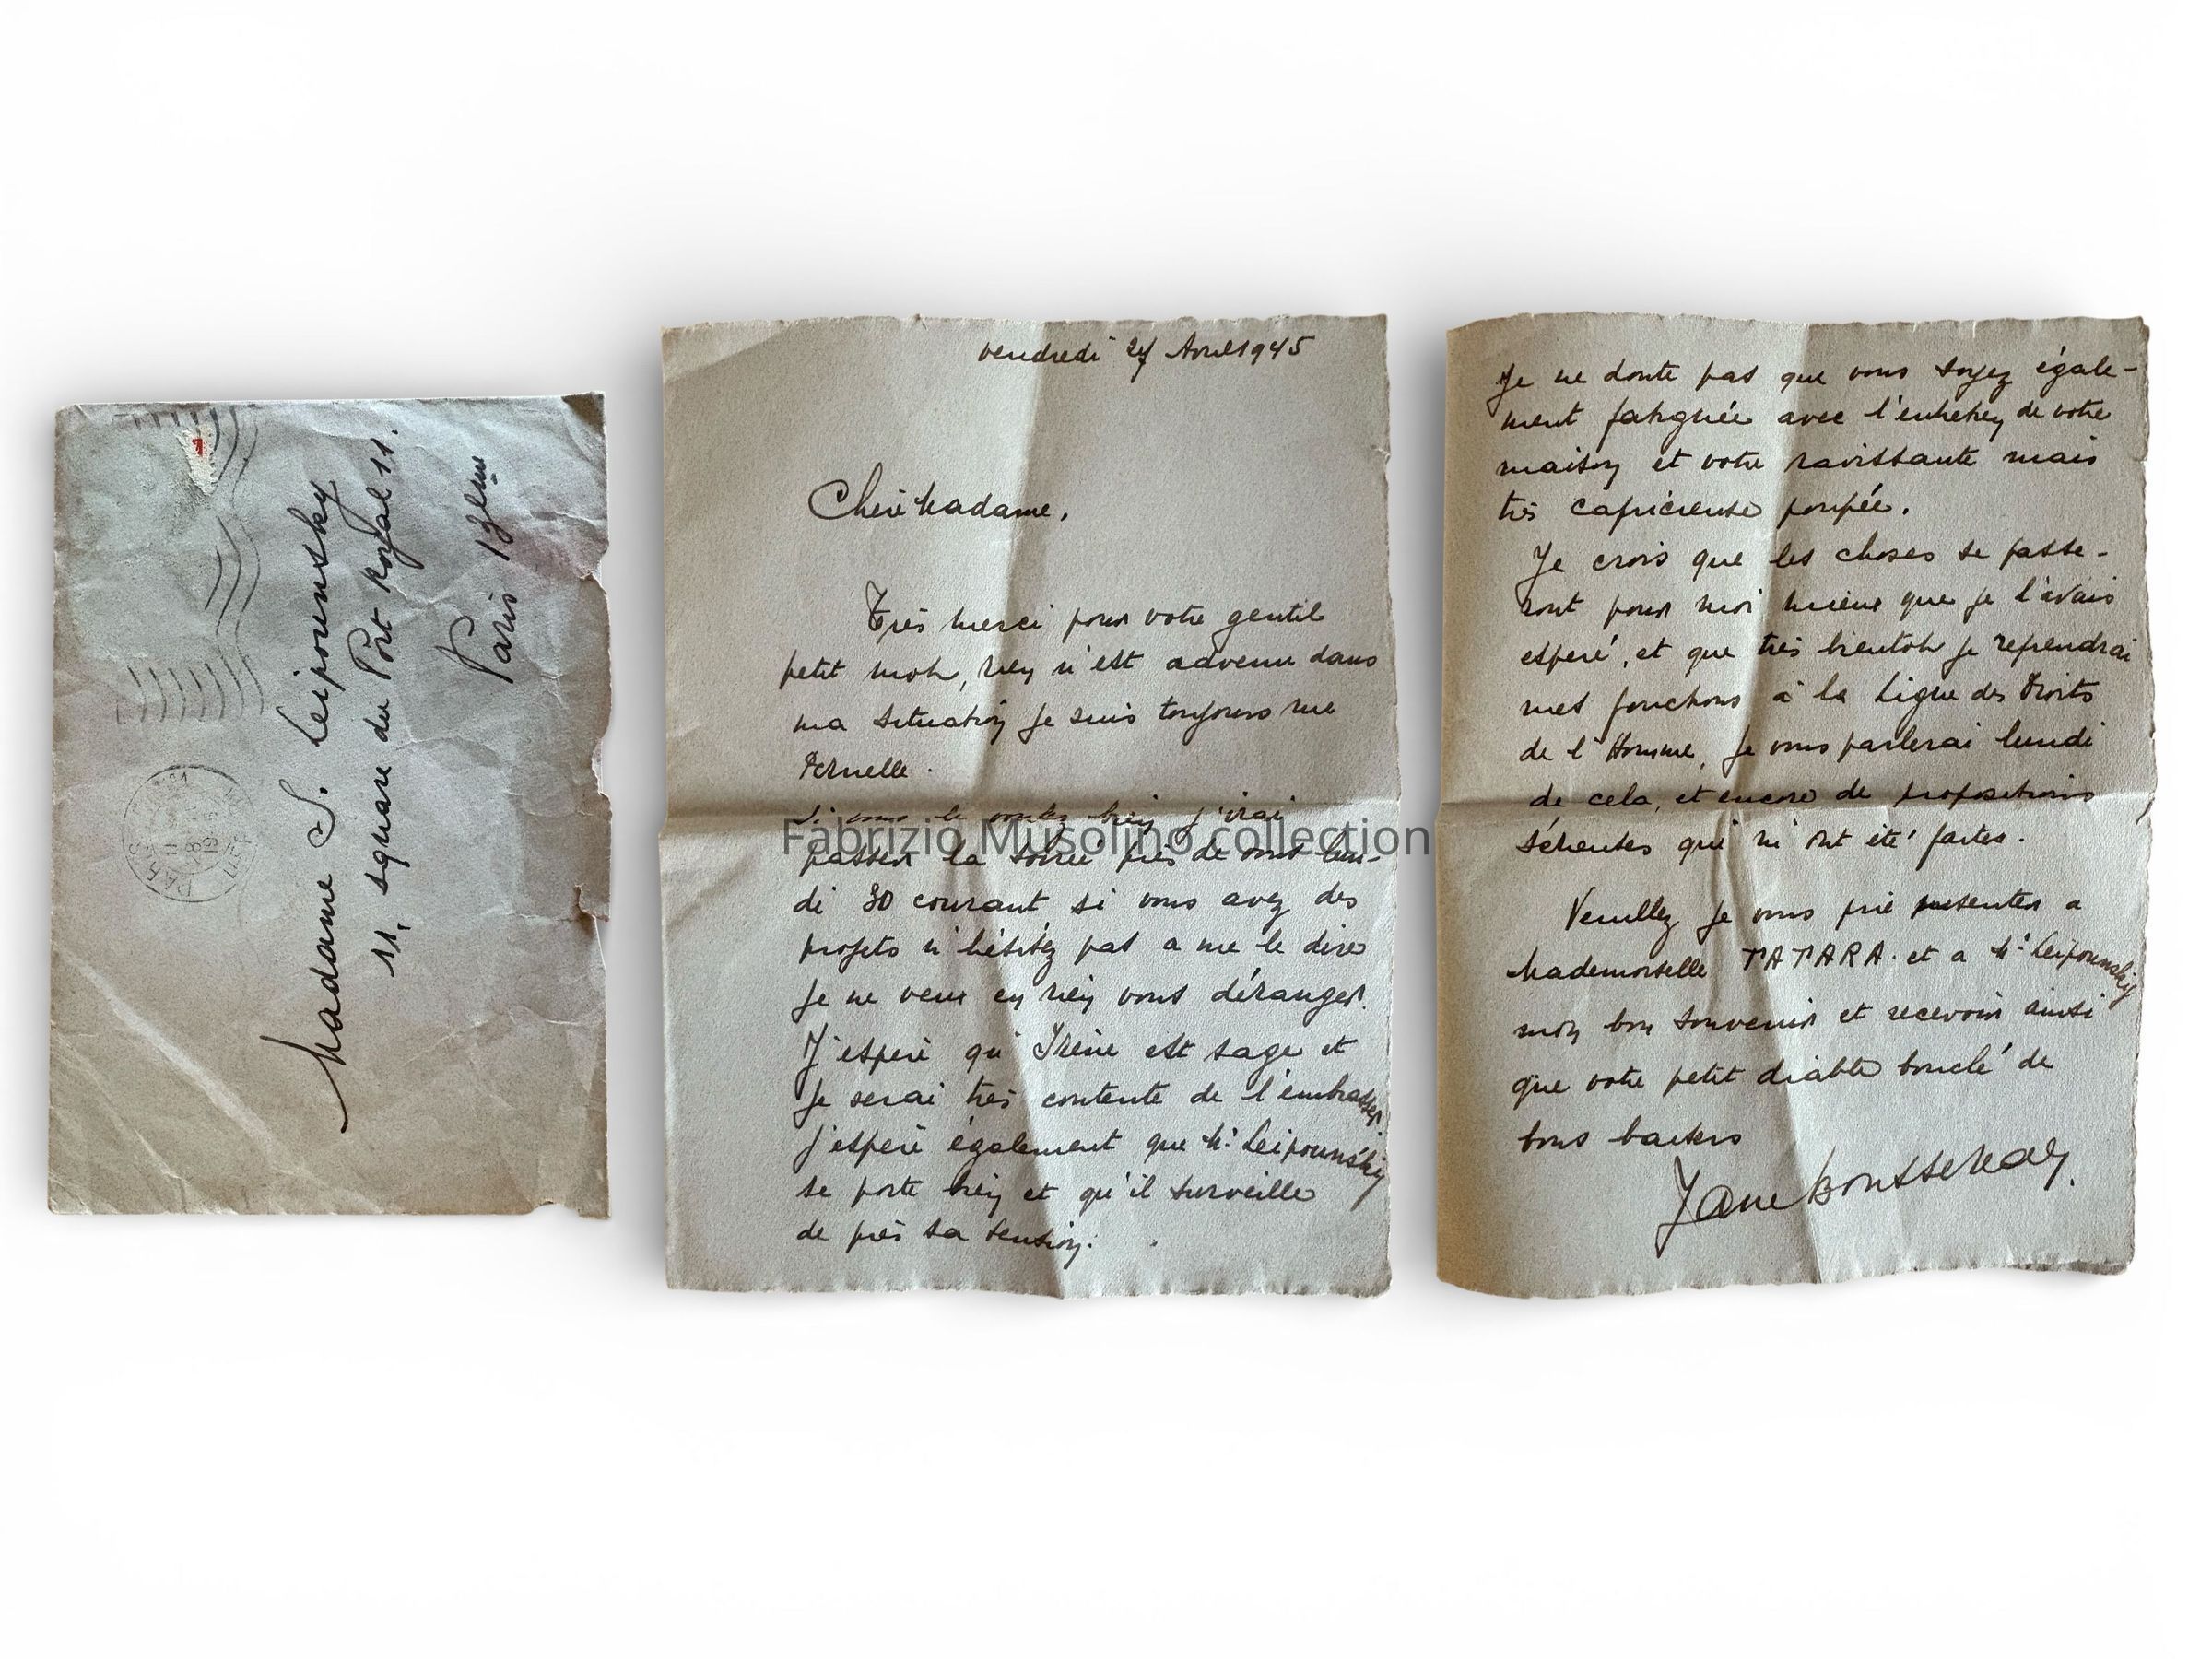 Madame S. Leipounsky
11, square du Port Royal 11.
Paris 13eme
vendredi 27 Avril 1945
Chère Madame,
Très merci pour votre gentil
petit mot, rien n'est advenu dans
ma situation je suis toujours rue
Fabrizio Musolino collection
Si vous le voulez bien j'irai
passer la soirée près de vous lun-
di 30 courant, si vous avez des
projets n'hésitez pas a me le dire
je ne veux en rien vous déranger.
J'espère qu'Irène est sage et
je serai très contente de l'embrasser
j'espère également que Mr Leipounsky
se porte bien et qu'il surveille
de près sa tension.
Je ne doute pas que vous soyez égale-
ment fatiguée avec l'entretien de votre
maison et votre ravissante mais
très capricieuse poupée.
Je crois que les choses se passe-
ront pour moi mieux que je l'avais
esperé, et que très bientot je reprendrai
mes fonctions à la Ligue des Droits
de l'Homme, je vous parlerai lundi
de cela, et encore de propositions
sérieuses qui m'ont été faites.
Veuillez je vous prie presenter a
Mademoiselle TATARA. et a Mr Leipounsky
mon bon souvenir et recevoir ainsi
que votre petit diable bouclé de
bons baisers
Jane